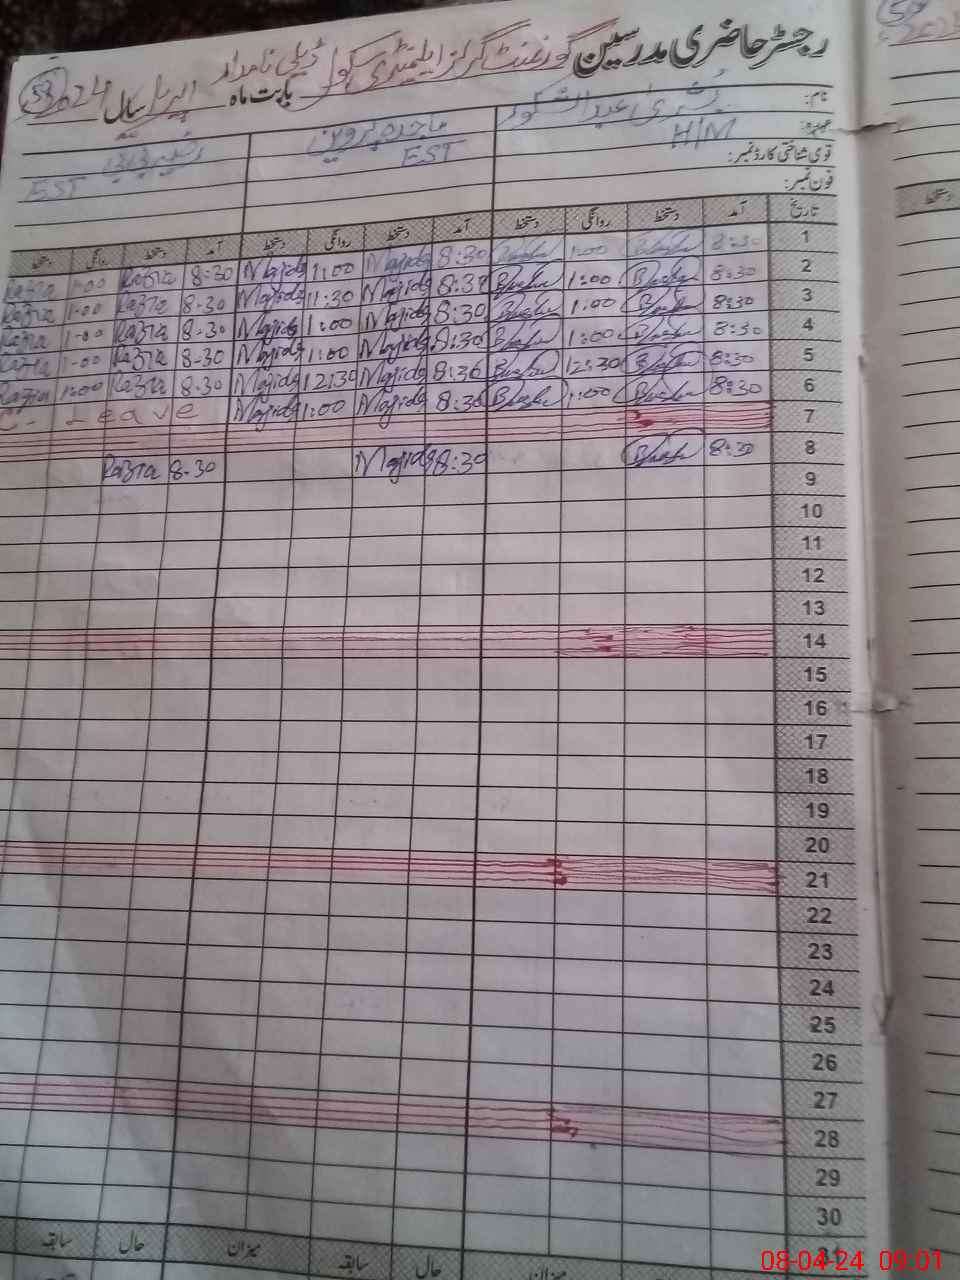 رجسٹر حاضری مدرسین گورنمنٹ گرلز ایلیمنٹری سکول
بابت ماہ اپریل سال 2024
نام: بشریٰ عبدالشکور ماجدہ پروین
عہدہ: H/M EST EST
قومی شناختی کارڈ نمبر:
فون نمبر:
تاریخ آمد دستخط روانگی دستخط آمد دستخط روانگی دستخط آمد دستخط روانگی دستخط
1 8:30 1:00 8:30 Majida 1:00 Majida 8:30 Razia 1-00 Razia
2 8:30 1:00 Majida 11:30 Majida 8-30 Razia 1-00 Razia
3 8:30 1:00 8:30 Majida 1:00 Majida 8-30 Razia 1-00 Razia
4 8:30 1:00 8:30 Majida 1:00 Majida 8-30 Razia 1-00 Razia
5 8:30 12:30 8:30 Majida 12:30 Majida 8-30 Razia Razia
6 8:30 1:00 8:30 Majida 1:00 Majida C. Leave
7
8 8:30 8:30 Majida 8-30 Razia
9
10
11
12
13
14
15
16
17
18
19
20
21
22
23
24
25
26
27
28
29
30
31
میزان حال سابقہ میزان حال سابقہ
08-04-24 09:01